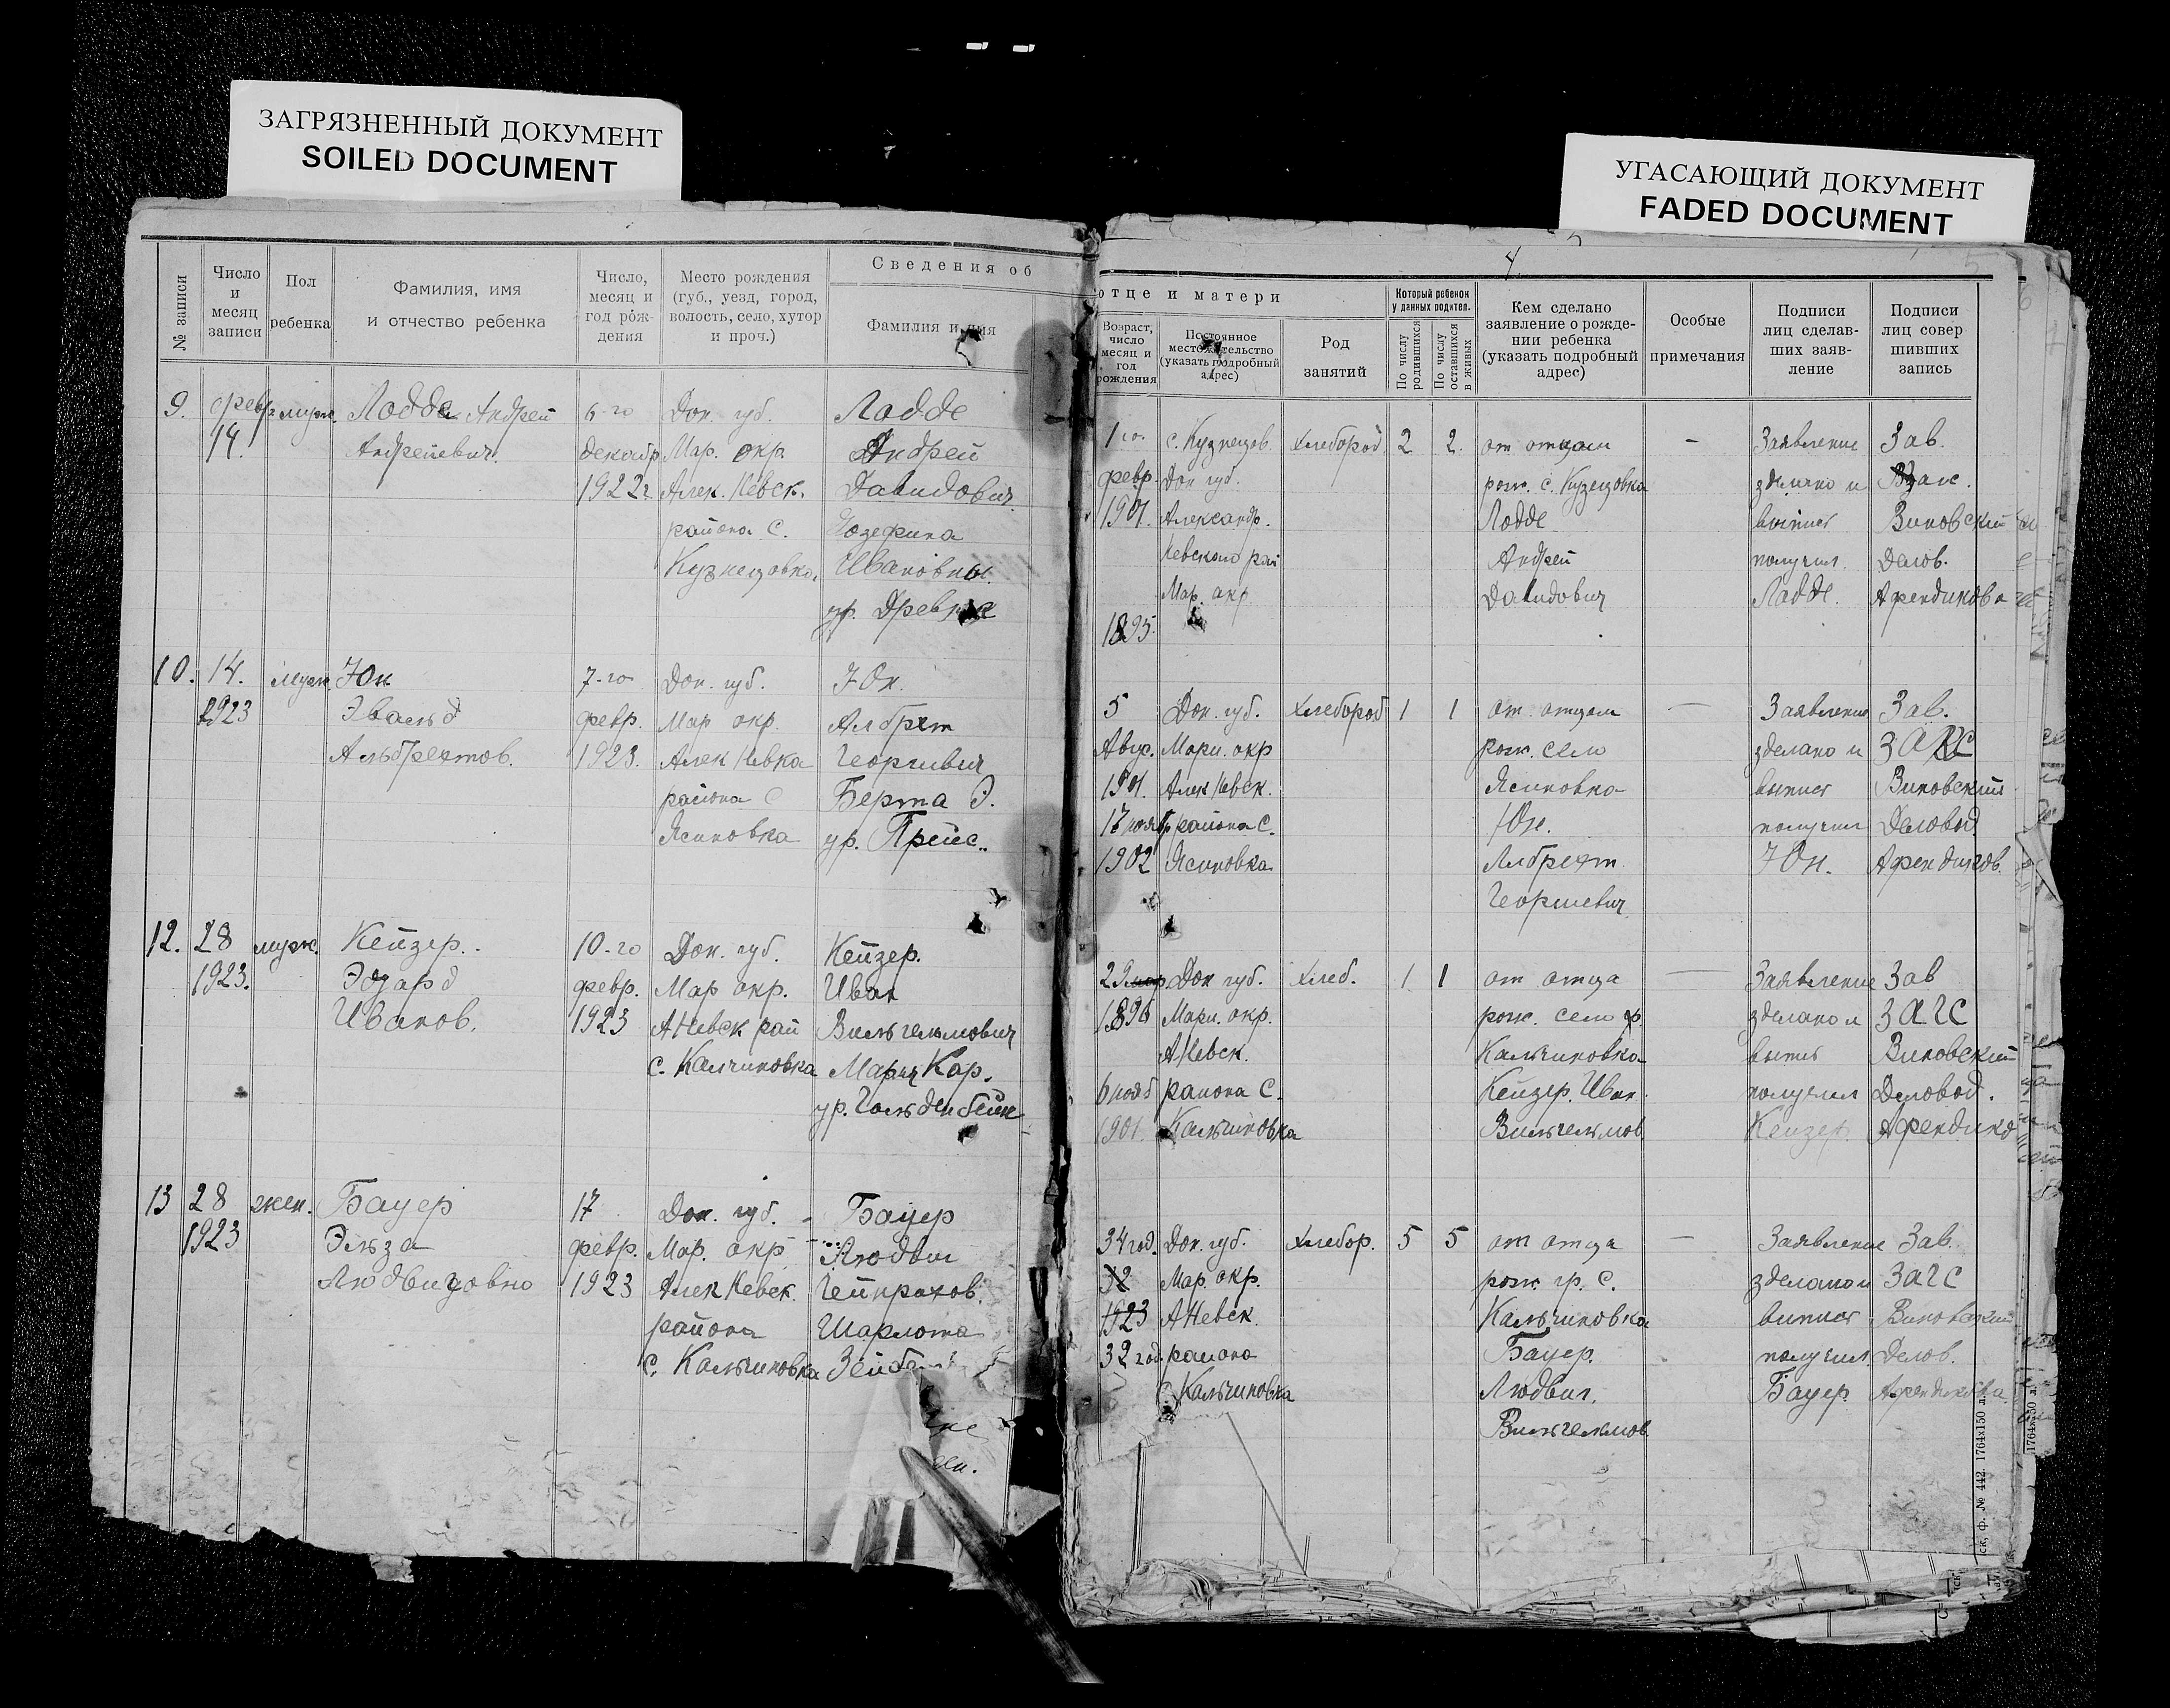 ЗАГРЯЗНЕННЫЙ ДОКУМЕНТ
SOILED DOCUMENT
УГАСАЮЩИЙ ДОКУМЕНТ
FADED DOCUMENT
4.
№ записи
Число и месяц записи
Пол ребенка
Фамилия, имя и отчество ребенка
Число, месяц и год рождения
Место рождения (губ., уезд, город, волость, село, хутор и проч.)
Сведения об отце и матери
Фамилия и имя
Возраст, число месяц и год рождения
Постоянное местожительство (указать подробный адрес)
Род занятий
Который ребенок у данных родител.
По числу родившихся
По числу оставшихся в живых
Кем сделано заявление о рождении ребенка (указать подробный адрес)
Особые примечания
Подписи лиц сделавших заявление
Подписи лиц совершивших запись
9.
февр.
14.
муж.
Лодде Андрей
Андреевич.
6-го
декабр
1922г
Дон. губ.
Мар. окр.
Алек. Невск.
района с.
Кузнецовка.
Лодде
Андрей
Давидович
Иозефина
Ивановна.
ур. Древ
1 го.
февр.
1901.
1895.
с. Кузнецов.
Дон губ.
Александр.
Невского рай
Мар. окр
Хлебород
2
2.
от отца
рож. с. Кузнецовка
Лодде
Андрей
Давидович
—
Заявление
зделано и
выпись
получил.
Лодде.
Зав.
Загс.
Виновский
Делов.
Афендикова
10.
14.
1923
муж.
Юн
Эвальд
Альбрехтов.
7-го
февр.
1923.
Дон. губ.
Мар окр.
Алек Невка
района с
Ясиновка
Юн.
Албрехт
Георгиевич
Берта Э.
ур. Прейс..
5
Авгус.
1901.
17 нояб
1902
Дон. губ.
Мари. окр
Алек Невск.
района с.
Ясиновка
Хлебород
1
1
от отца
рож. село
Ясиновка
Юн.
Албрехт
Георгиевич
—
Заявление
зделано и
выпись
получил
Юн.
Зав.
ЗАГС
Виновский
Деловод
Афендиков.
12.
28
1923.
муж.
Кейзер.
Эдуард
Иванов.
10-го
февр.
1923
Дон. губ.
Мар окр.
А Невск рай
с. Калчиновка
Кейзер.
Иван
Вильгельмович
Мария Кар.
ур. Гольденбейн
29
1896
6 нояб
1901.
Дон губ.
Мари. окр.
А Невск.
района с.
Кальчиновка
Хлеб.
1
1
от отца
рож. село
Кальчиновка
Кейзер. Иван.
Вильгельмов.
—
Заявление
зделано и
выпись
получил
Кейзер.
Зав
ЗАГС
Виновский
Деловод.
Афендико
13
28
1923
жен.
Бауер
Эльза
Людвиговна
17
февр.
1923
Дон. губ.
Мар. окр
Алек Невск.
района
с. Кальчиновка
Бауер
Людвиг
Гейнрохов.
Шарлота
34 год.
32
1923
32 год.
Дон. губ.
Мар. окр.
А Невск.
района
с. Кальчиновка
Хлебор.
5
5
от отца
рож. гр. с.
Кальчиновка
Бауер.
Людвиг.
Вильгельмов.
—
Заявление
зделано и
выпись
получил
Бауер.
Зав.
ЗАГС
Виновский
Делов.
Афендикова
ск, ф. № 442. 1764х150 л.
1764х150 л.